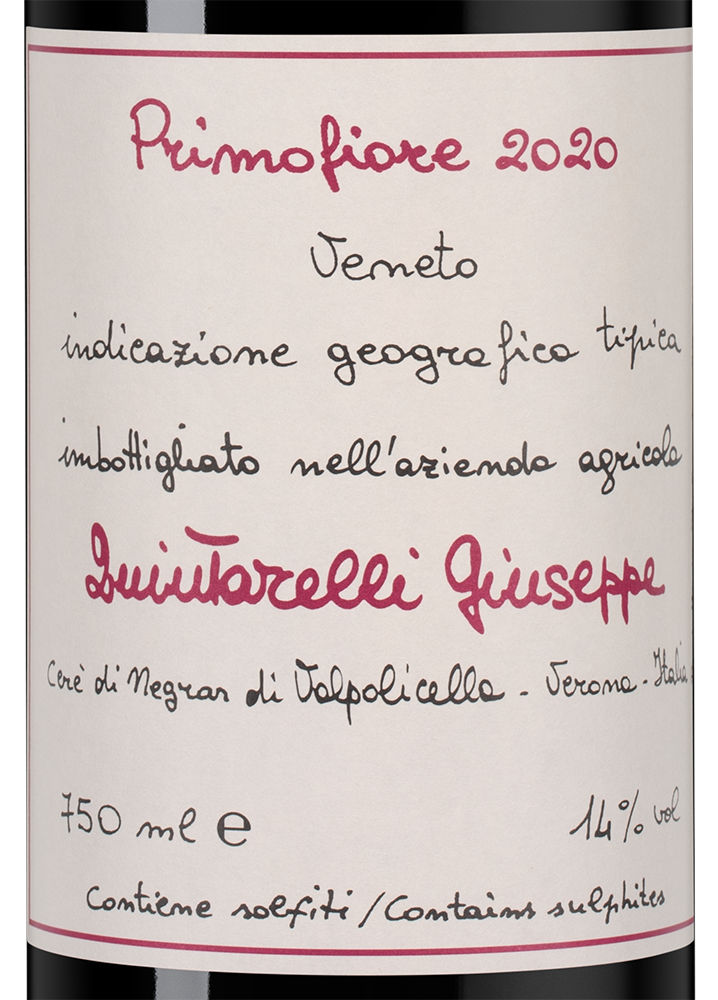 Primofiore 2020
Veneto
indicazione geografica tipica
imbottigliato nell'azienda agricola
Quintarelli Giuseppe
Cerè di Negrar di Valpolicella - Verona - Italia
750 ml e
14% vol
Contiene solfiti / Contains sulphites